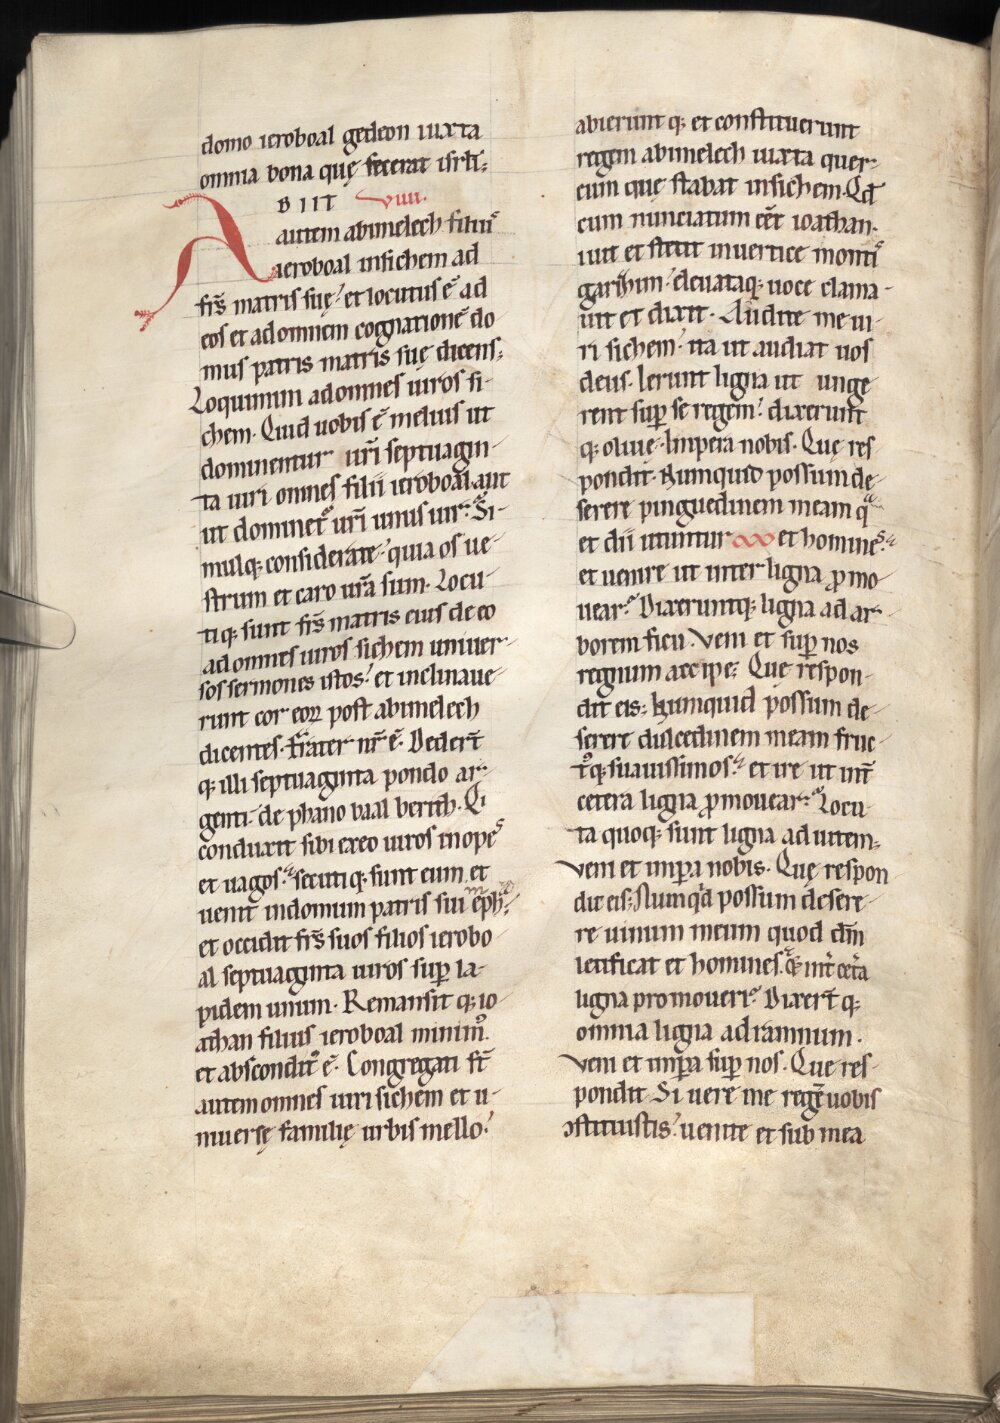 domo ieroboal gedeon iuxta
omnia bona quę fecerat isrl̄i;
ABIIT VIIII.
autem abimelech filiꝰ
ieroboal insichem ad
fr̄s matris suę. et locutus ē ad
eos et ad omnem cognationē do-
mus patris matris suę dicens;
Loquimini adomnes uiros si-
chem. Quid uobis ē melius ut
dominentur ur̄i septuagin-
ta uiri omnes filii ieroboal. aut
ut dominet᷑ ur̄i unus uir? Si-
mulq; considerate. quia os ue-
strum et caro ur̄a sum. Locu-
tiq; sunt fr̄s matris eius de eo
ad omnes uiros sichem uniuer-
sos sermones istos. et inclinaue-
runt cor eoꝝ post abimelech
dicentes. Frater nr̄ ē. Dedert̄
q; illi septuaginta pondo ar-
genti. de phano baal berith. Qi
conduxit sibi exeo uiros inopeˢ
et uagos. secutiq; sunt eum. et
uenit indomum patris sui ep̄h
et occidit fr̄s suos filios ierobo-
al septuaginta uiros suꝑ la-
pidem unum. Remansit q; io-
athan filius ieroboal minimꝰ.
et absconditꝰ ē. Congregati st̄
autem omnes uiri sichem et u-
niuersę familię urbis mello.
abierunt q; et constituerunt
regem abimelech iuxta quer-
cum quę stabat insichem. Qd̄
cum nunciatum eēt ioathan.
iuit et stetit inuertice montiˢ
garizim. eleuataq; uoce clama-
uit et dixit. Audite me ui-
ri sichem. ita ut audiat uos
deus. Ierunt ligna ut unge
rent suꝑ se regem. dixerunt
q; oliue. Impera nobis. Quę res
pondit. Numquid possum de-
serere pinguedinem meam qᵃ
et dii utuntur et homineˢ.
et uenire ut inter ligna ꝓmo
uear? Dixeruntq; ligna ad ar-
borem ficu. Veni et suꝑ nos
regnum accipe; Quę respon-
dit eis; Numquid possum de-
serere dulcedinem meam fruc-
tꝰq; suauissimos. et ire ut int̄
cetera ligna ꝓmouear? Locu-
ta quoq; sunt ligna aduitem;
Veni et imꝑa nobis. Quę respon
dit eis; Numq'd possum desere-
re uinum meum quod dm̄
letificat et homines. & int̄ cet̄a
ligna promoueri? Dixert̄ q;
omnia ligna adramnum.
Veni et imꝑa suꝑ nos. Que res-
pondit Si uere me regē uobis
ↄstituistis. uenite et sub mea